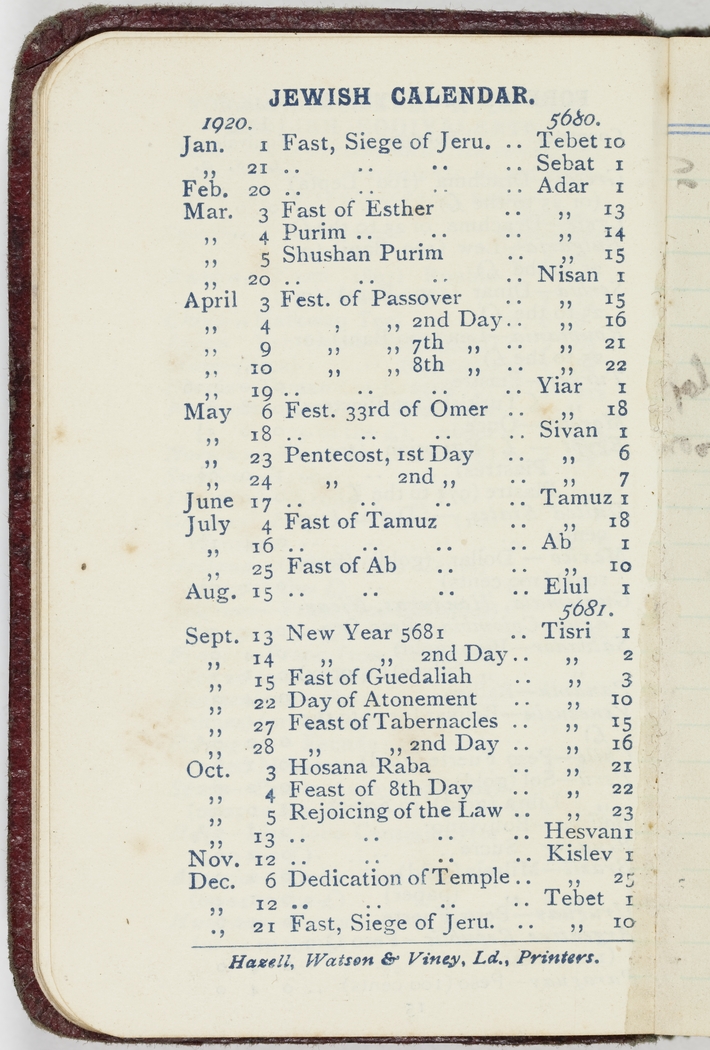 JEWISH CALENDAR.
1920. 5680.
Jan. 1 Fast, Siege of Jeru. .. Tebet 10
,, 21 .. .. .. .. Sebat 1
Feb. 20 .. .. .. .. Adar 1
Mar. 3 Fast of Esther .. ,, 13
,, 4 Purim .. .. .. ,, 14
,, 5 Shushan Purim .. ,, 15
,, 20 .. .. .. .. Nisan 1
April 3 Fest. of Passover .. ,, 15
,, 4 , ,, 2nd Day .. ,, 16
,, 9 ,, ,, 7th ,, .. ,, 21
,, 10 ,, ,, 8th ,, .. ,, 22
,, 19 .. .. .. .. Yiar 1
May 6 Fest. 33rd of Omer .. ,, 18
,, 18 .. .. .. .. Sivan 1
,, 23 Pentecost, 1st Day .. ,, 6
,, 24 ,, 2nd ,, .. ,, 7
June 17 .. .. .. .. Tamuz 1
July 4 Fast of Tamuz .. ,, 18
,, 16 .. .. .. .. Ab 1
,, 25 Fast of Ab .. .. ,, 10
Aug. 15 .. .. .. .. Elul 1
5681.
Sept. 13 New Year 5681 .. Tisri 1
,, 14 ,, ,, 2nd Day .. ,, 2
,, 15 Fast of Guedaliah .. ,, 3
,, 22 Day of Atonement .. ,, 10
,, 27 Feast of Tabernacles .. ,, 15
,, 28 ,, ,, 2nd Day .. ,, 16
Oct. 3 Hosana Raba .. ,, 21
,, 4 Feast of 8th Day .. ,, 22
,, 5 Rejoicing of the Law .. ,, 23
,, 13 .. .. .. .. Hesvan 1
Nov. 12 .. .. .. .. Kislev 1
Dec. 6 Dedication of Temple .. ,, 25
,, 12 .. .. .. .. Tebet 1
., 21 Fast, Siege of Jeru. .. ,, 10
Hazell, Watson & Viney, Ld., Printers.